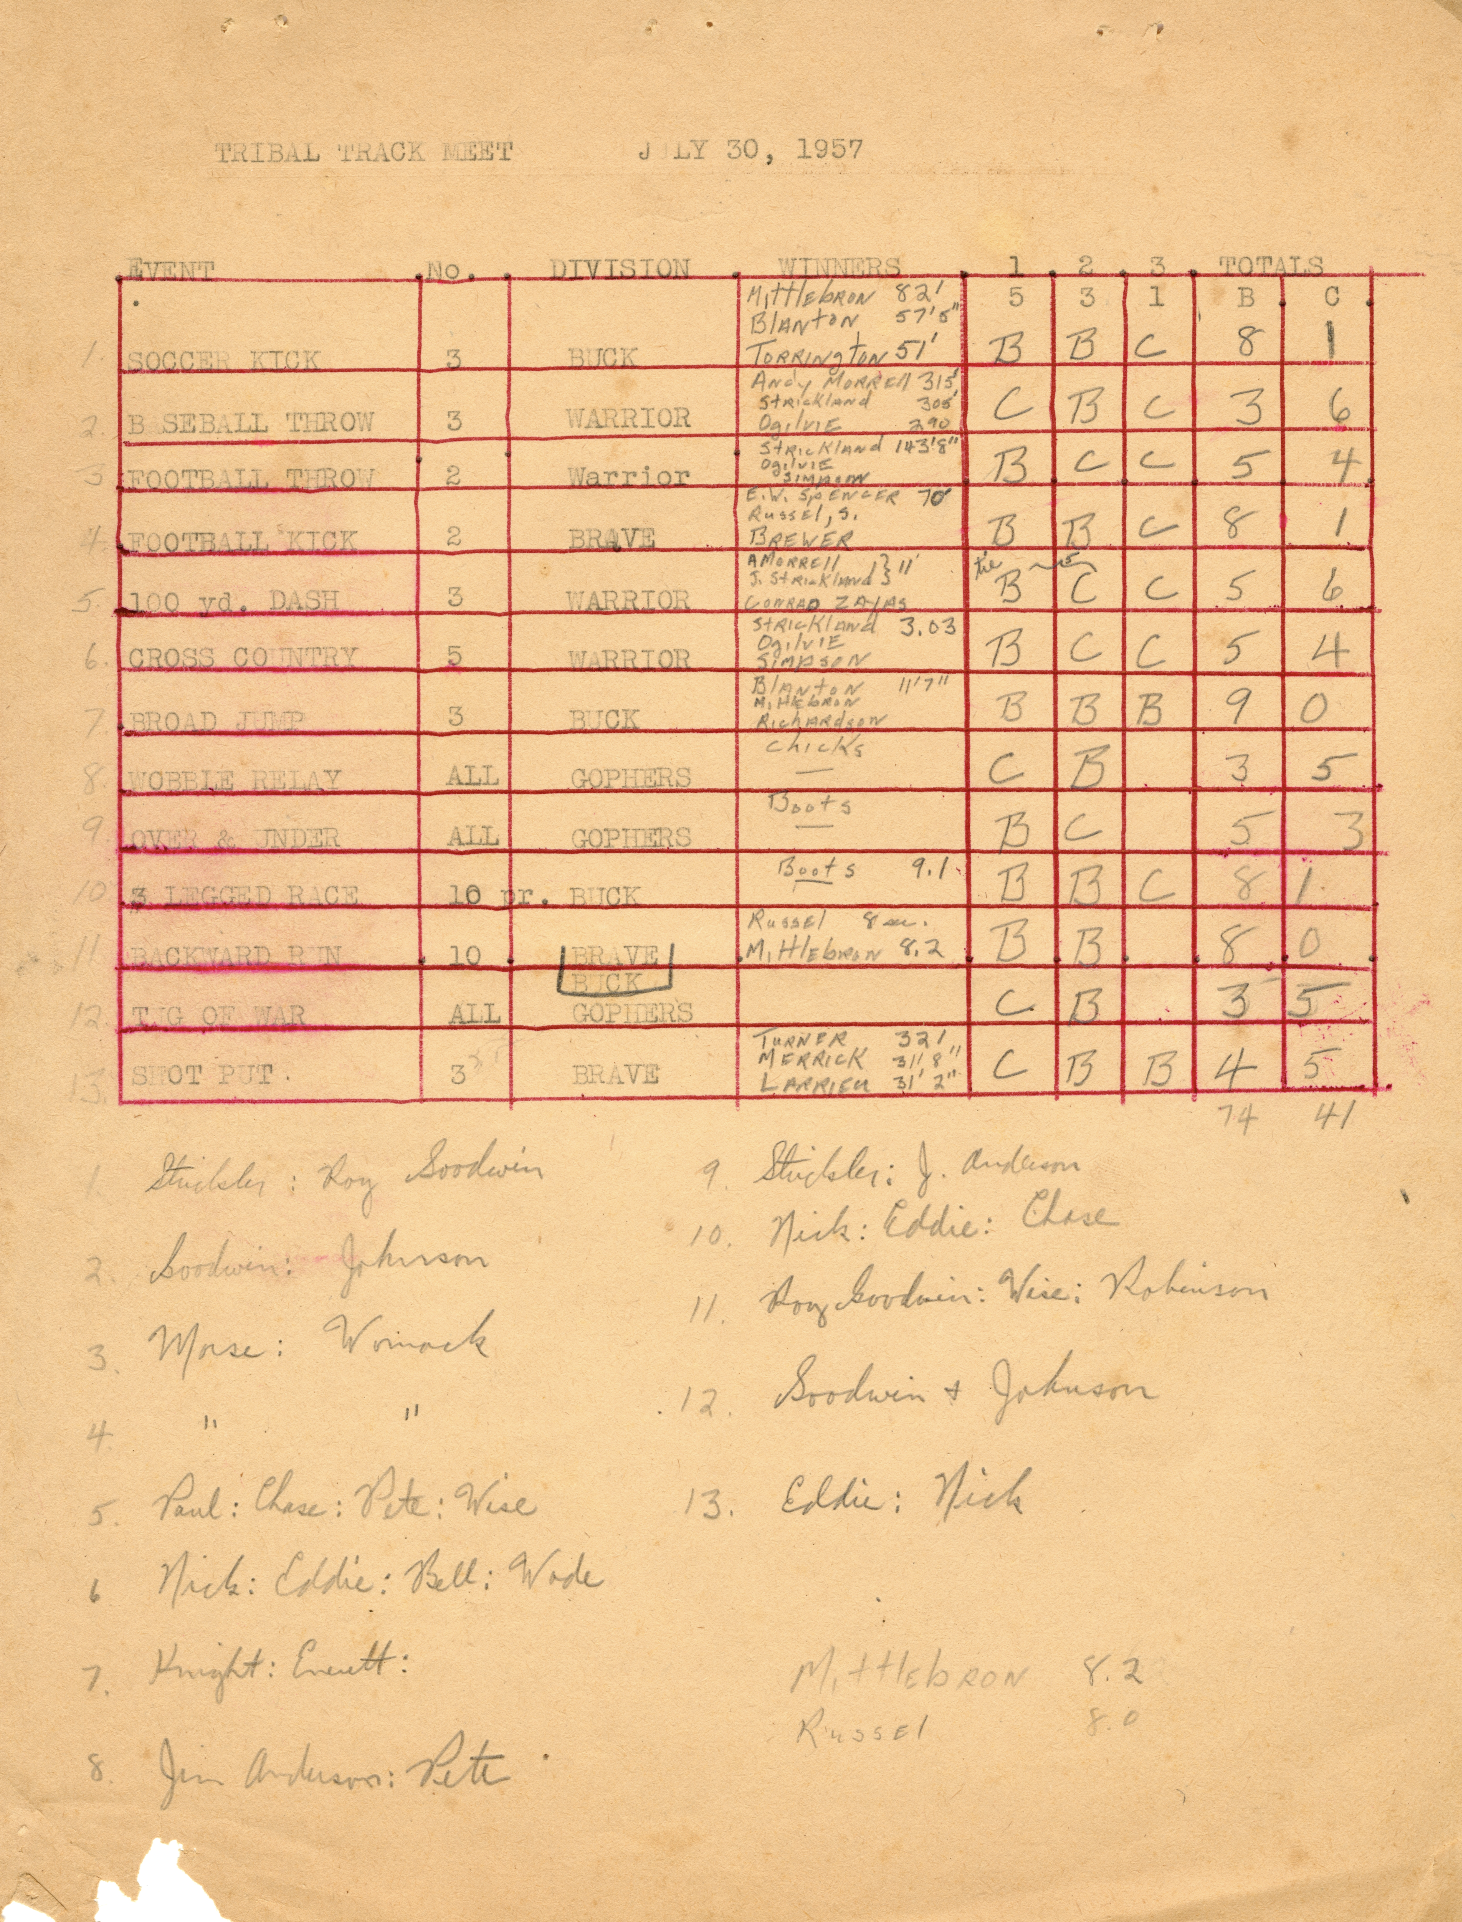 TRIBAL TRACK MEET JULY 30, 1957
EVENT No. DIVISION WINNERS 1 2 3 TOTALS
5 3 1 B C
Mittlebron 82'
Blanton 57'5"
1. SOCCER KICK 3 BUCK Torrington 51' B B C 8 1
Andy Morrell 315'
Strickland 305'
2. BASEBALL THROW 3 WARRIOR Ogilvie 290 C B C 3 6
Strickland 143'8"
Ogilvie
3 FOOTBALL THROW 2 Warrior Simpson B C C 5 4
E.W. Spencer 70'
Russel, S.
4. FOOTBALL KICK 2 BRAVE Brewer B B C 8 1
A Morrell } 11'
J. Strickland } tie
5. 100 yd. DASH 3 WARRIOR Conrad Zayas B C C 5 6
Strickland 3.03
Ogilvie
6. CROSS COUNTRY 5 WARRIOR Simpson B C C 5 4
Blanton 11'7"
Mittlebron
7. BROAD JUMP 3 BUCK Richardson B B B 9 0
Chicks
8. WOBBLE RELAY ALL GOPHERS — C B 3 5
Boots
9 OVER & UNDER ALL GOPHERS — B C 5 3
Boots 9.1
10 3 LEGGED RACE 10 pr. BUCK B B C 8 1
Russel 8 sec.
11 BACKWARD RUN 10 BRAVE Mittlebron 8.2 B B 8 0
BUCK
12 TUG OF WAR ALL GOPHERS C B 3 5
Turner 32'
Merrick 31' 8"
13. SHOT PUT. 3 BRAVE Larrieu 31' 2" C B B 4 5
74 41
1 Stickler: Roy Goodwin
2. Goodwin: Johnson
3. Morse: Womack
4. " "
5. Paul: Chase: Pete: Wise
6 Nick: Eddie: Bell: Wade
7. Knight: Everett:
8. Jim Anderson: Pete
9. Stickler: J. Anderson
10. Nick: Eddie: Chase
11. Roy Goodwin: Wise: Robinson
12. Goodwin + Johnson
13. Eddie: Nick
Mittlebron 8.2
Russel 8.0